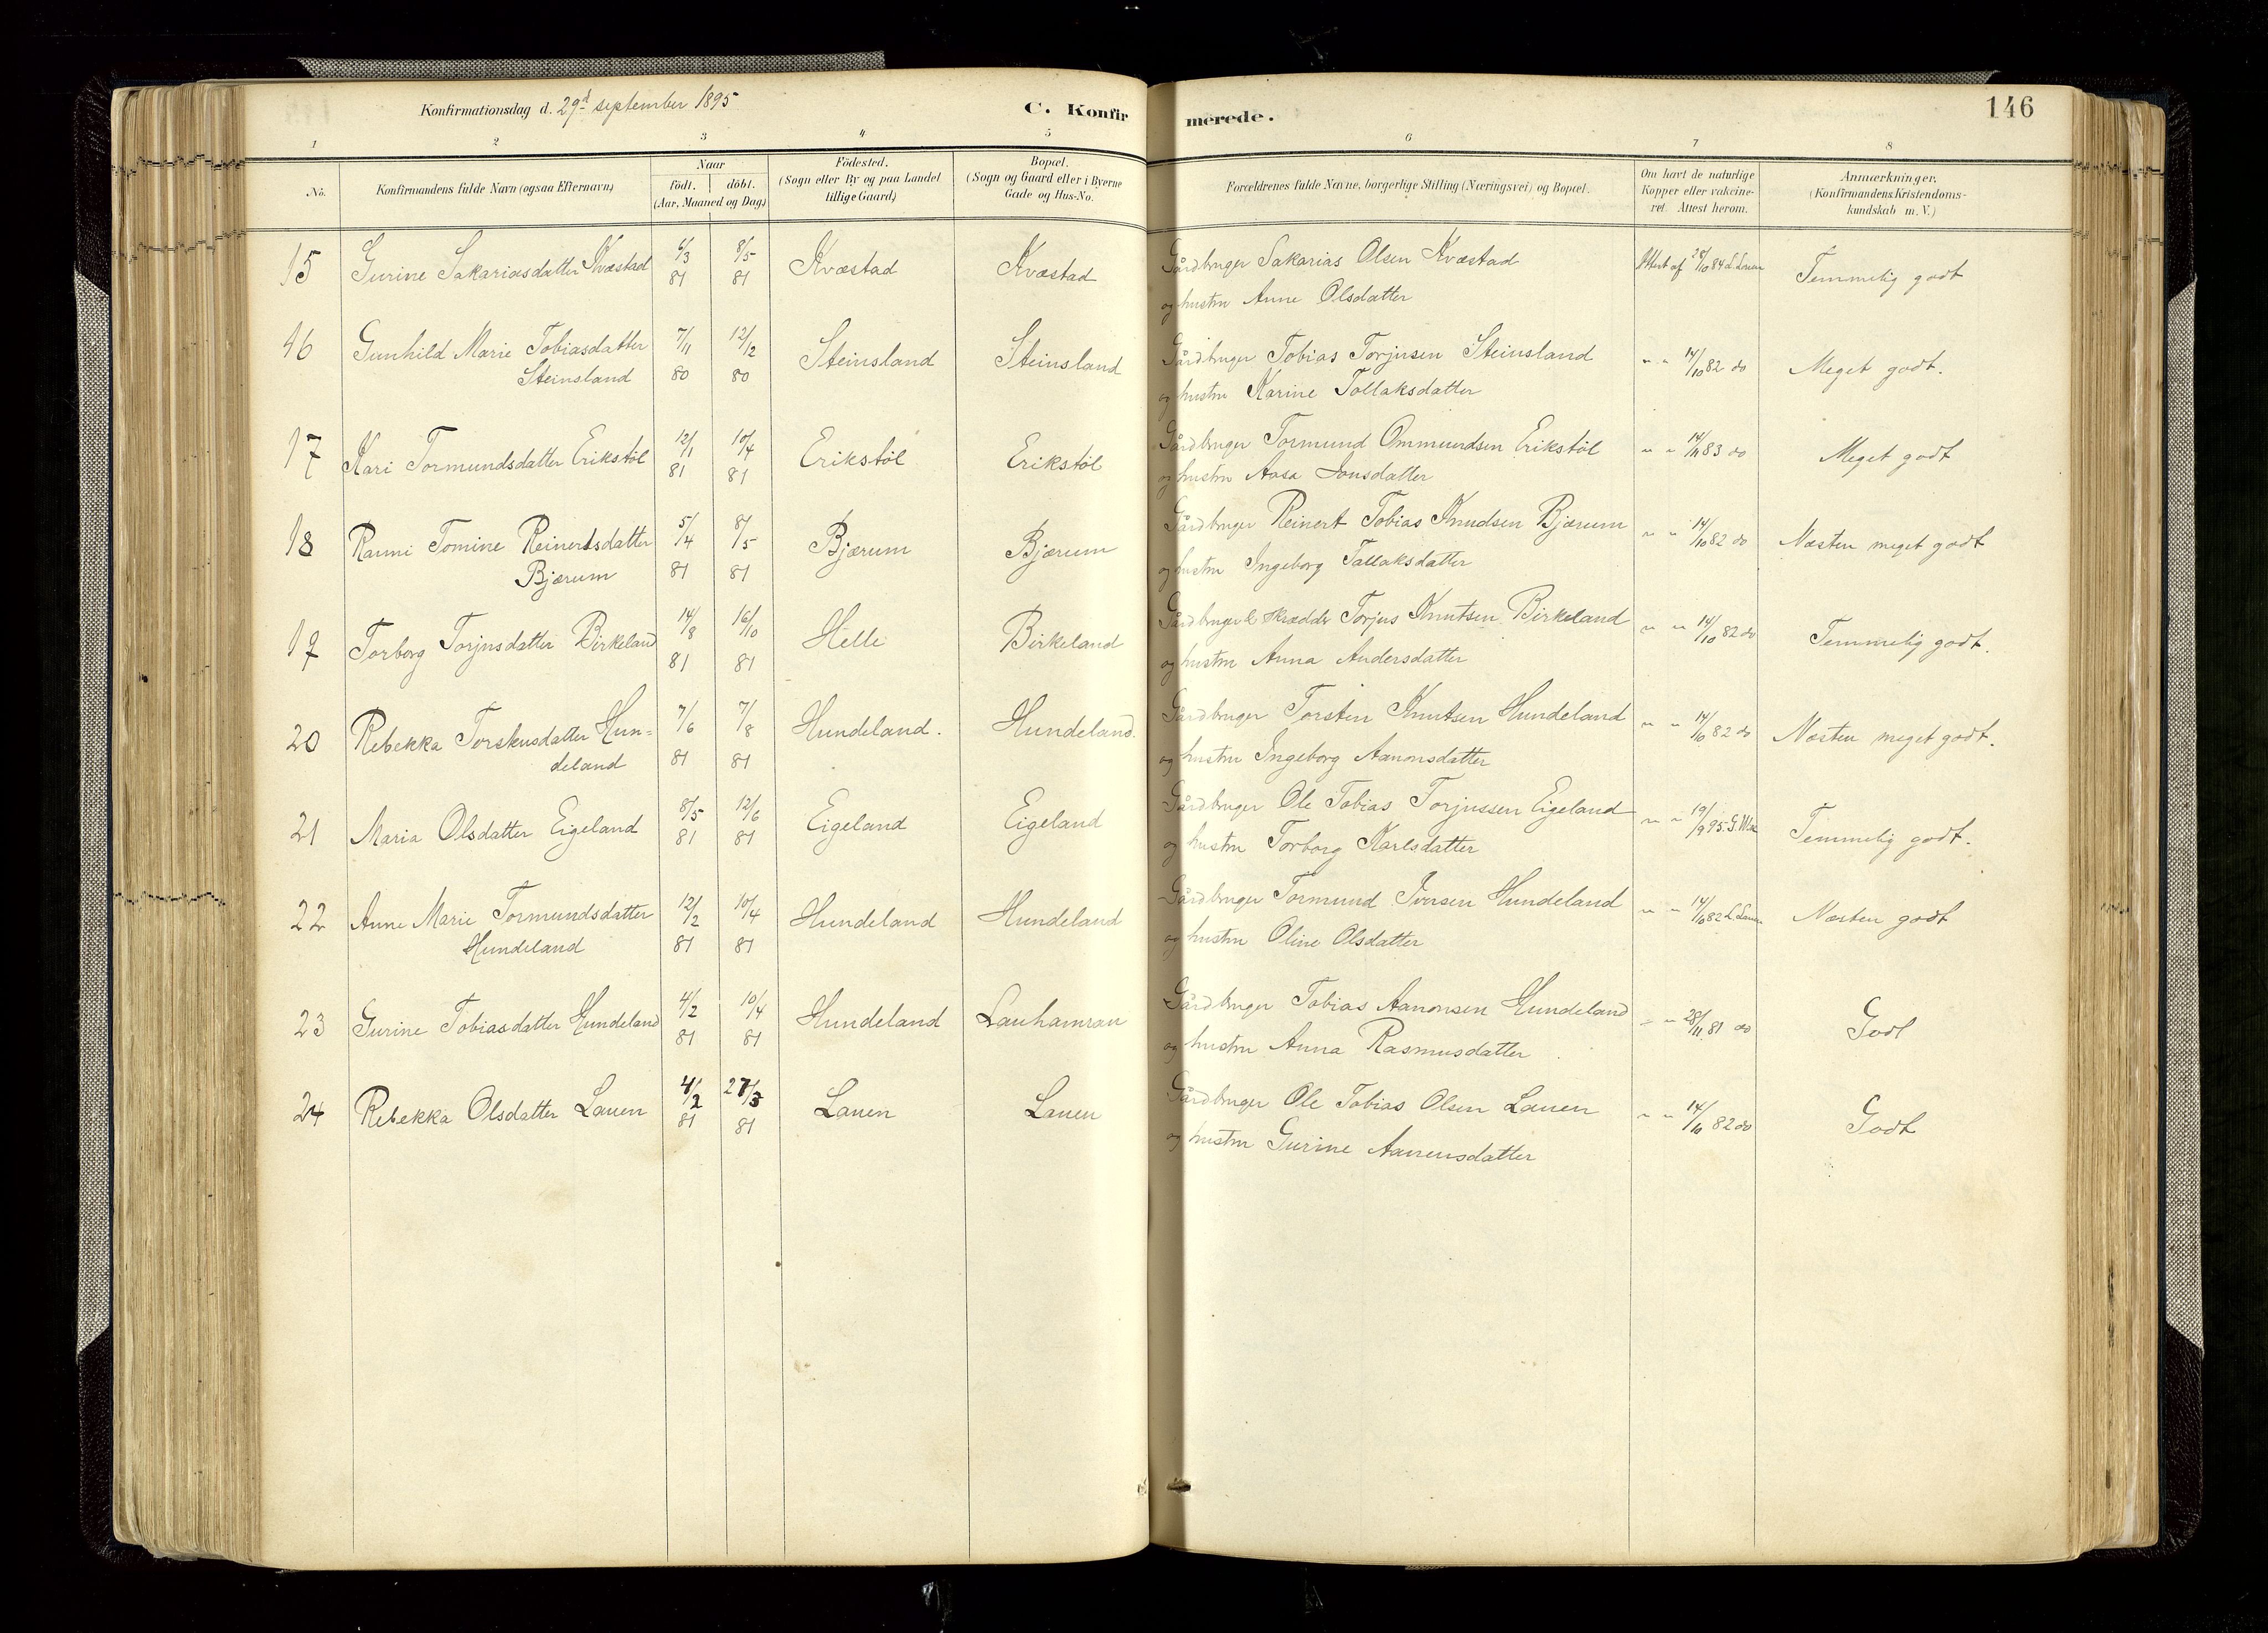 Konfirmationsdag d. 29d september 1895
C. Konfir merede.
146
1 2 3 4 5 6 7 8
No.
Konfirmandens fulde Navn (ogsaa Efternavn)
Naar
födt. döbt.
(Aar, Maaned og Dag)
Födested.
(Sogn eller By og paa Landet
tillige Gaard)
Bopæl.
(Sogn og Gaard eller i Byerne
Gade og Hus-No.
Forældrenes fulde Navne, borgerlige Stilling (Næringsvei) og Bopæl.
Om havt de naturlige
Kopper eller vakcine-
ret. Attest herom.
Anmærkninger.
(Konfirmandens Kristendoms-
kundskab m. V.)
15 Gurine Sakariasdatter Kvæstad 6/3 81 8/5 81 Kvæstad Kvæstad Gårdbruger Sakarias Olsen Kvæstad Attest af 28/10 84 L. Lauen Temmelig godt
og hustru Anne Olsdatter
16 Gunhild Marie Tobiasdatter 7/11 80 12/12 80 Steinsland Steinsland Gårdbruger Tobias Torjusen Steinsland " " 14/10 82 do Meget godt.
Steinsland og hustru Karine Tollaksdatter
17 Kari Tormundsdatter Erikstöl 12/1 81 10/4 81 Erikstöl Erikstöl Gårdbruger Tormund Ommundsen Erikstöl " " 14/11 83 do Meget godt
og hustru Aasa Jonsdatter
18 Ranni Tomine Reinertsdatter 5/4 81 8/5 81 Bjærum Bjærum Gårdbruger Reinert Tobias Knudsen Bjærum " " 14/10 82 do Næsten meget godt
Bjærum og hustru Ingeborg Tallaksdatter
19 Torborg Torjusdatter Birkeland 14/8 81 16/10 81 Helle Birkeland Gårdbruger & skrædder Torjus Knutsen Birkeland " " 14/10 82 do Temmelig godt.
og hustru Anna Andersdatter
20 Rebekka Torstensdatter Hun= 7/6 81 7/8 81 Hundeland. Hundeland. Gårdbruger Torstein Knutsen Hundeland " " 14/10 82 do Næsten meget godt.
deland og hustru Ingeborg Aanonsdatter
21 Maria Olsdatter Eigeland 8/5 81 12/6 81 Eigeland Eigeland Gårdbruger Ole Tobias Torjussen Eigeland " " 19/9 95. Temmelig godt.
og hustru Torborg Karlsdatter
22 Anne Marie Tormundsdatter 12/2 81 10/4 81 Hundeland Hundeland Gårdbruger Tormund Iversen Hundeland " " 14/10 82 L Lauen Næsten godt
Hundeland og hustru Oline Olsdatter
23 Gurine Tobiasdatter Hundeland 4/2 81 10/4 81 Hundeland Lauhamran Gårdbruger Tobias Aanonsen Hundeland " " 28/11 81 do Godt
og hustru Anna Rasmusdatter
24 Rebekka Olsdatter Lauen 4/2 81 27/3 81 Lauen Lauen Gårdbruger Ole Tobias Olsen Lauen " " 14/10 82 do Godt
og hustru Gurine Aanensdatter